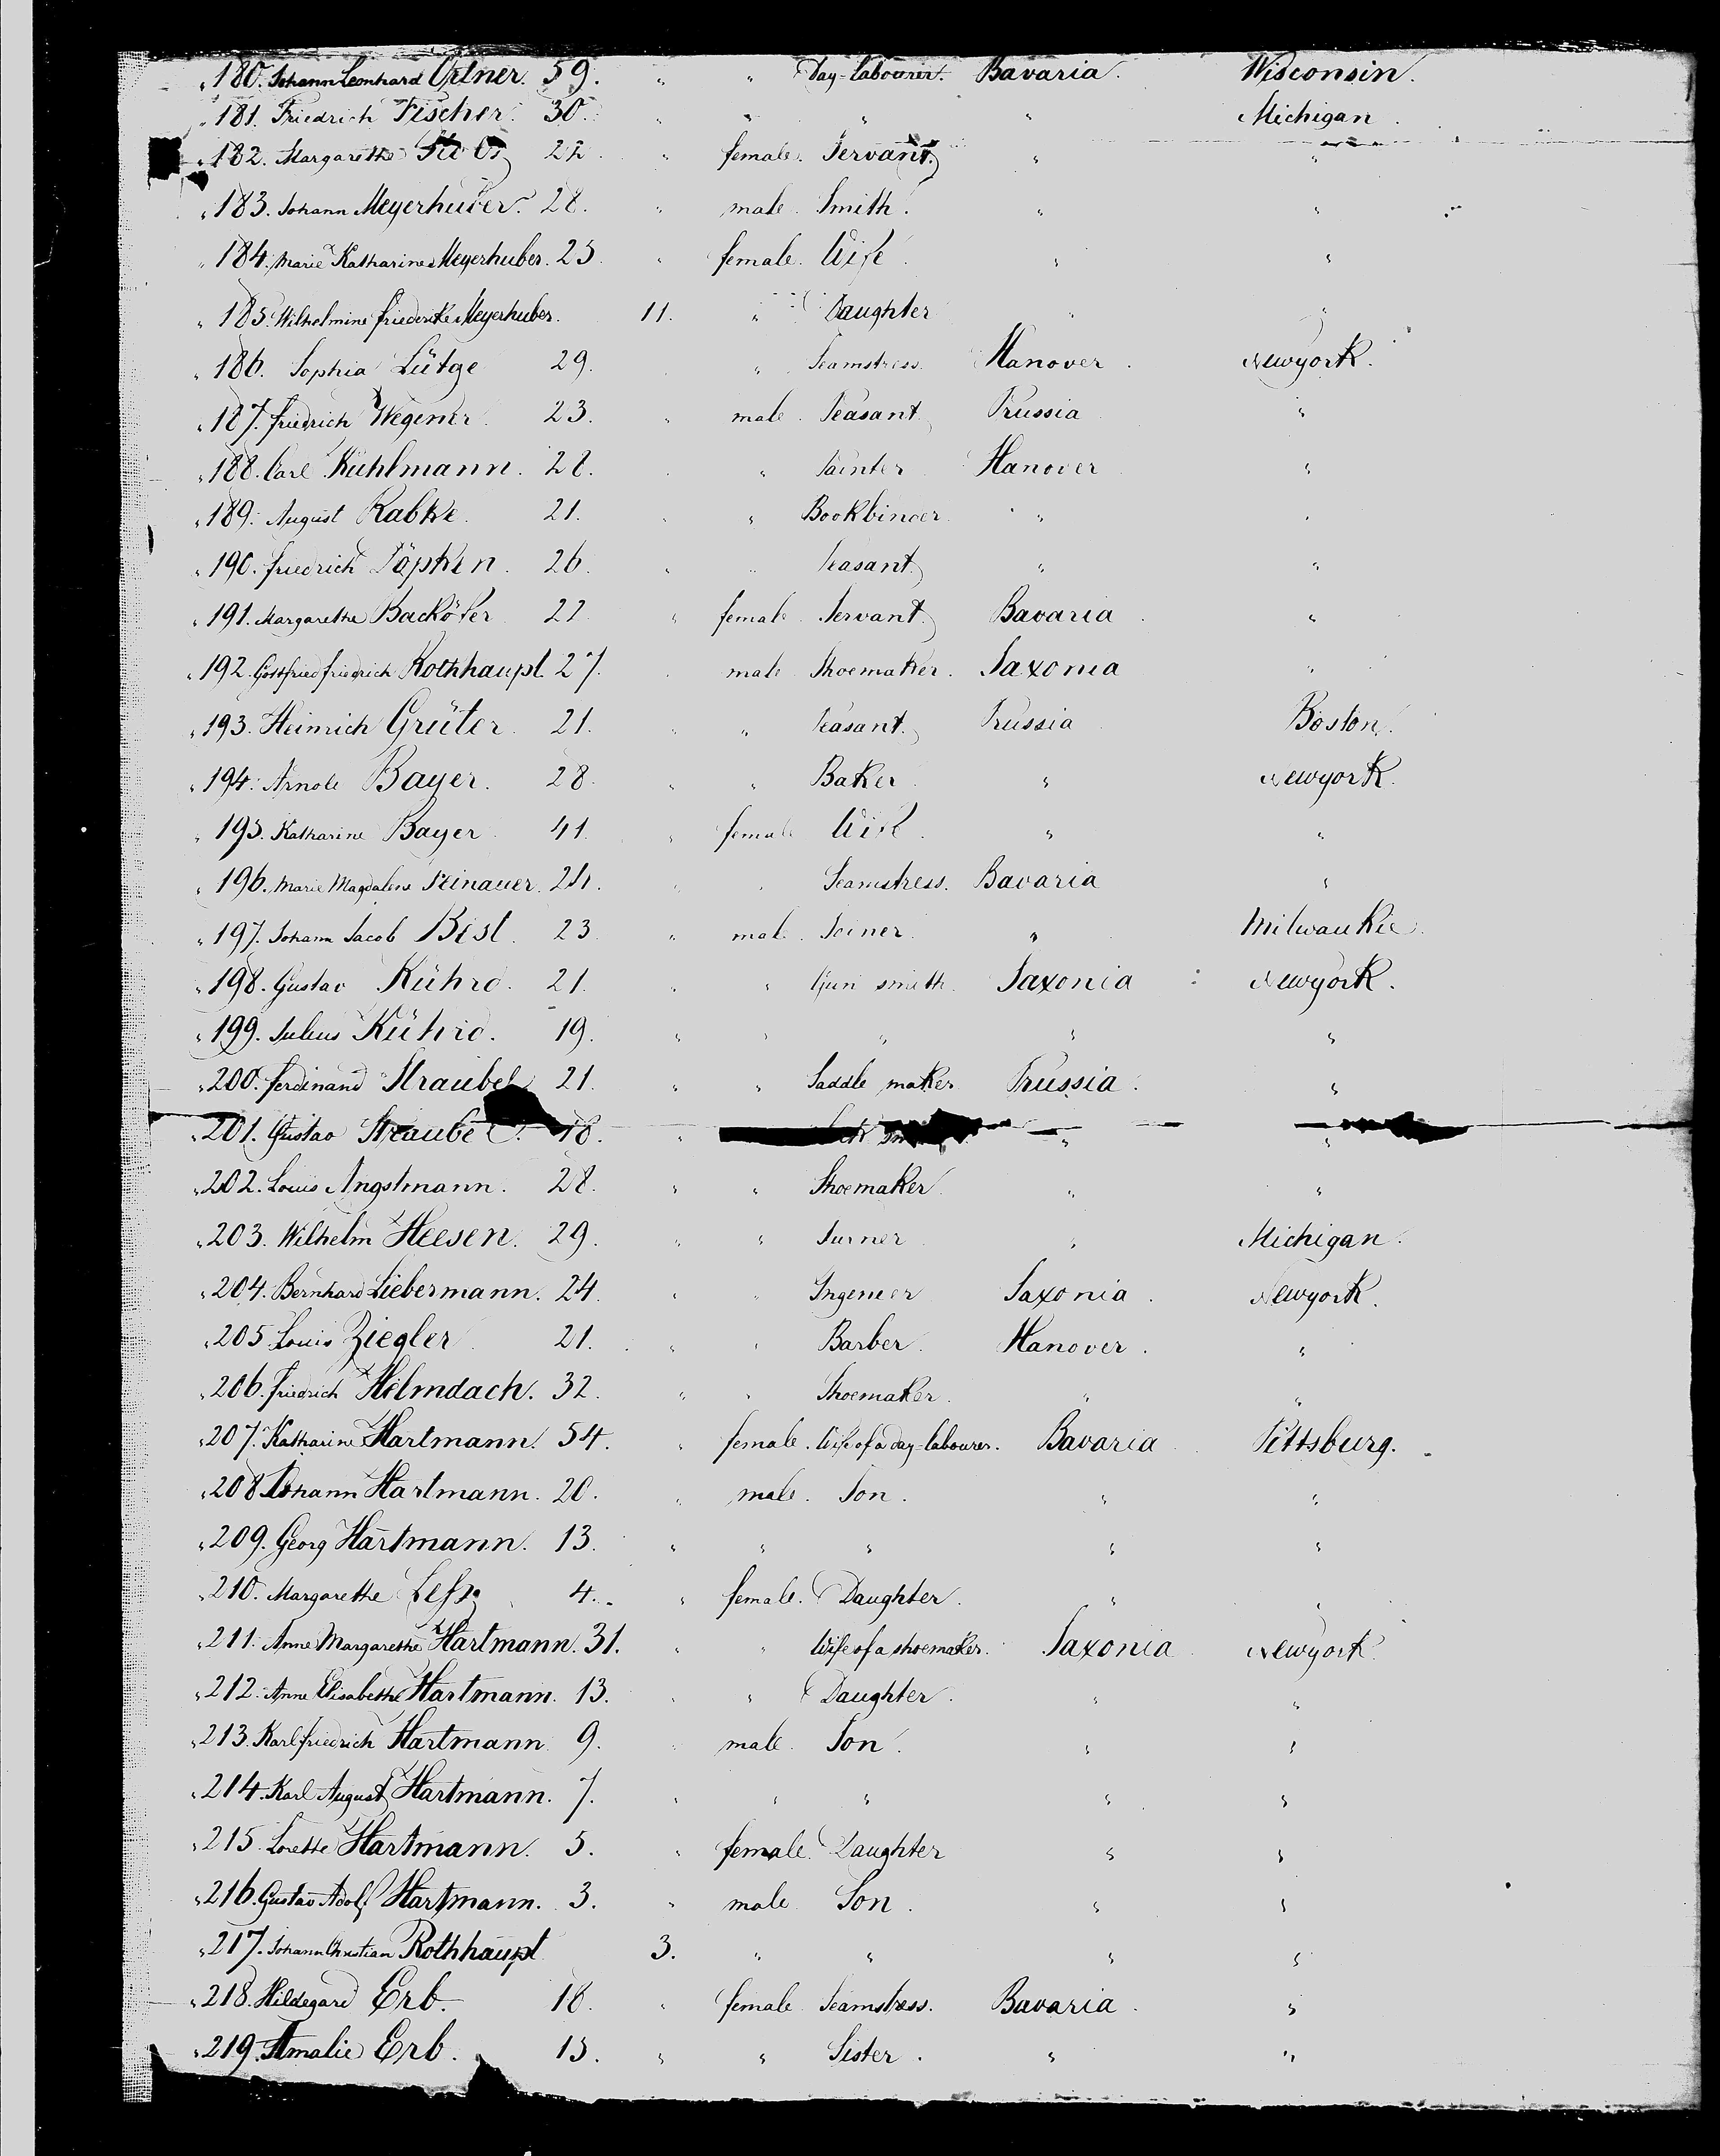 „ 180. Johann Leonhard Ortner. 59. „ „ Day-labourer. Bavaria. Wisconsin.
„ 181. Friedrich Fischer. 30. „ „ „ „ Michigan.
„ 182. Margarethe 22. „ female. Servant. „ „
„ 183. Johann Meyerhuber. 28. „ male. Smith. „ „
„ 184. Marie Katharine Meyerhuber. 25. „ female. Wife. „ „
„ 185. Wilhelmine Friederike Meyerhuber. 11. „ Daughter „ „
„ 186. Sophia Lütge 29. „ Seamstress. Hanover. Newyork.
„ 187. Friedrich Wegener. 23. „ male. Peasant. Prussia „
„ 188. Carl Kuhlmann. 28. „ Painter Hanover „
„ 189. August Rabke. 21. „ „ Bookbinder. „ „
„ 190. Friedrich Töpken. 26. „ „ Peasant. „ „
„ 191. Margarethe Backöfer 22 „ female. Servant. Bavaria. „
„ 192. Gottfried Friedrich Rothhaupt. 27. male Shoemaker. Saxonia „
„ 193. Heinrich Grüter. 21. „ „ Peasant. Prussia Boston.
„ 194. Arnold Bayer. 28. „ „ Baker „ Newyork.
„ 195. Katharine Bayer. 41. „ female Wife. „ „
„ 196. Marie Magdalene Steinauer. 24. „ „ Seamstress. Bavaria „
„ 197. Johann Jacob Best. 23. „ male. Joiner. „ Milwaukie.
„ 198. Gustav Kührd. 21. „ „ Gun smith. Saxonia Newyork.
„ 199. Julius Kührd. 19. „ „ „ „ „
„ 200. Ferdinand Straubel 21. „ „ Saddle maker Prussia. „
„ 201. Gustav Straubel. 18. „ „ „
„ 202. Louis Angstmann. 28. „ „ Shoemaker. „ „
„ 203. Wilhelm Heesen. 29. „ „ Turner „ Michigan.
„ 204. Bernhard Liebermann. 24. „ „ Ingenier Saxonia. Newyork.
„ 205 Louis Ziegler 21. „ „ Barber. Hanover. „
„ 206. Friedrich Helmdach. 32. „ „ Shoemaker. „ „
„ 207. Katharine Hartmann. 54. „ female. Wife of a day-labourer. Bavaria Pittsburg.
„ 208 Johann Hartmann. 20. „ male. Son. „ „
„ 209. Georg Hartmann. 13. „ „ „ „ „
„ 210. Margarethe 4. „ female. Daughter. „ „
„ 211. Anne Margarethe Hartmann. 31. „ „ Wife of a shoemaker. Saxonia Newyork.
„ 212. Anne Elisabethe Hartmann. 13. „ „ Daughter. „ „
„ 213. Karl Friedrich Hartmann 9. „ male. Son. „ „
„ 214. Karl August Hartmann. 7. „ „ „ „ „
„ 215. Lorette Hartmann. 5. „ female. Daughter „ „
„ 216. Gustav Adolf Hartmann. 3. „ male. Son. „ „
„ 217. Johann Christian Rothhaupt 3. „ „ „ „
„ 218. Hildegard Erb. 18. „ female Seamstress. Bavaria. „
„ 219. Amalie Erb. 15. „ „ Sister. „ „